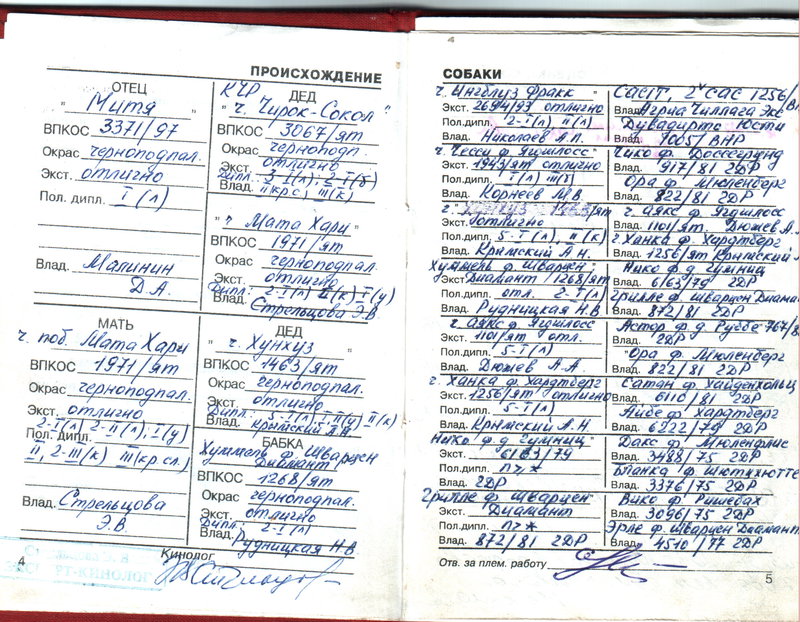 ПРОИСХОЖДЕНИЕ
ОТЕЦ
" Митя "
ВПКОС 3371/97
Окрас черноподпал.
Экст. отлично
Пол. дипл. I(л)
Влад. Малинин
Д.А.
КЧР ДЕД
" ч. Чирок-Сокол "
ВПКОС 3067/ят
Окрас черноподп.
Экст. отлично
Дипл: 3-I(л); 2-I(б)
Влад. II кр.с, III(к)
" ч Мата Хари "
ВПКОС 1971/ят
Окрас черноподпал.
Экст. отлично
Дипл: 2-I(л) II(к) I(у)
Влад. Стрельцова Э.В
МАТЬ
ч. поб. Мата Хари
ВПКОС 1971/ят
Окрас черноподпал.
Экст. отлично
2-I(л) 2-II(л), I(у)
Пол. дипл.
II, 2-III(к) III(кр сл.)
Влад. Стрельцова
Э.В.
ДЕД
" ч. Хунхуз "
ВПКОС 1463/ят
Окрас черноподпал.
Экст. отлично
Дипл: 5-I(л) I, II(у) II(к)
Влад. Крымский А.Н.
БАБКА
Хуммель ф. Шварцен
Диамант
ВПКОС 1268/ят
Окрас черноподпал.
Экст. отлично
Дипл: 2-I(л)
Влад. Рудницкая Н.В
Кинолог
4
СОБАКИ
ч. Инглуз Фракк "
Экст. 2694/93 отлично
Пол.дипл. 2-I(л) II(л)
Влад. Николаев А.П.
ч. Чесси ф. Ягдшлосс
Экст. 1943/ят отлично
Пол.дипл. I(л) III(б)
Влад. Корнеев М.В.
Экст. отлично
Пол.дипл. 5-I(л), II(к)
Влад. Крымский А.Н.
Хуммель ф. Шварцен
Экст. Диамант 1268/ят
Пол.дипл. отл. 2-I(л)
Влад. Рудницкая Н.В
ч. Аякс ф. Ягдшлосс
Экст. 1101/ят отл.
Пол.дипл. 5-I(л)
Влад. Дюжев А.А.
ч. Ханка ф. Хардтберг
Экст. 1256/ят отлично
Пол.дипл. 5-I(л)
Влад. Крымский А.Н
Нико ф. д Гумниц "
Экст. 6163/79
Пол.дипл.
Влад. 2ДР
Грилле ф. Шварцен "
Экст. Диамант
Пол.дипл.
Влад. 872/81 2ДР
САСIT, 2 САС 1256/
Влад. Агриа Чиллага Экс
Дувадирто Юсти
Влад. 7005/ВНР
Чико ф. Доссегрунд
Влад. 917/81 2ДР
Ора ф. Мюленберг
Влад. 822/81 2ДР
ч. Аякс ф. Ягдшлосс
Влад. 1101/ят. Дюжев А.
ч. Ханка ф. Хардтберг
Влад. 1256/ят Крымский А.
Нико ф. д Гумниц
Влад. 6163/79 2ДР
Грилле ф. Шварцен Диаман
Влад. 872/81 2ДР
Астор ф. д. Руббе 767/8
Влад. 2ДР
"Ора ф. Мюленберг
Влад. 822/81 2ДР
Сатан ф. Хайденхольц
Влад. 6110/81 2ДР
Айбе ф. Хардтберг
Влад. 6222/79 2ДР
Дакс ф. Мюленфлис
Влад. 3488/75 2ДР
Бланка ф. Шютихютте
Влад. 3376/75 2ДР
Вико ф. Ришебах
Влад. 3096/75 2ДР
Эрле ф. Шварцен Диамант
Влад. 4510/77 2ДР
Отв. за плем. работу
5